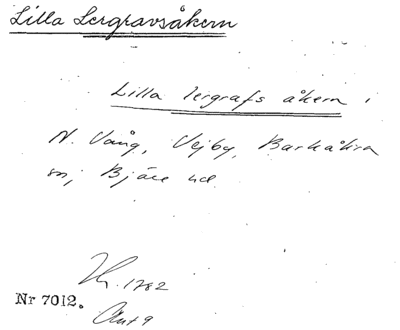 Lilla Lergravsåkern
Lilla lergrafs åkern i
N. Vång, Vejby, Barkåkra
sn, Bjäre hd
1782
Nr 7012.
Akt 9